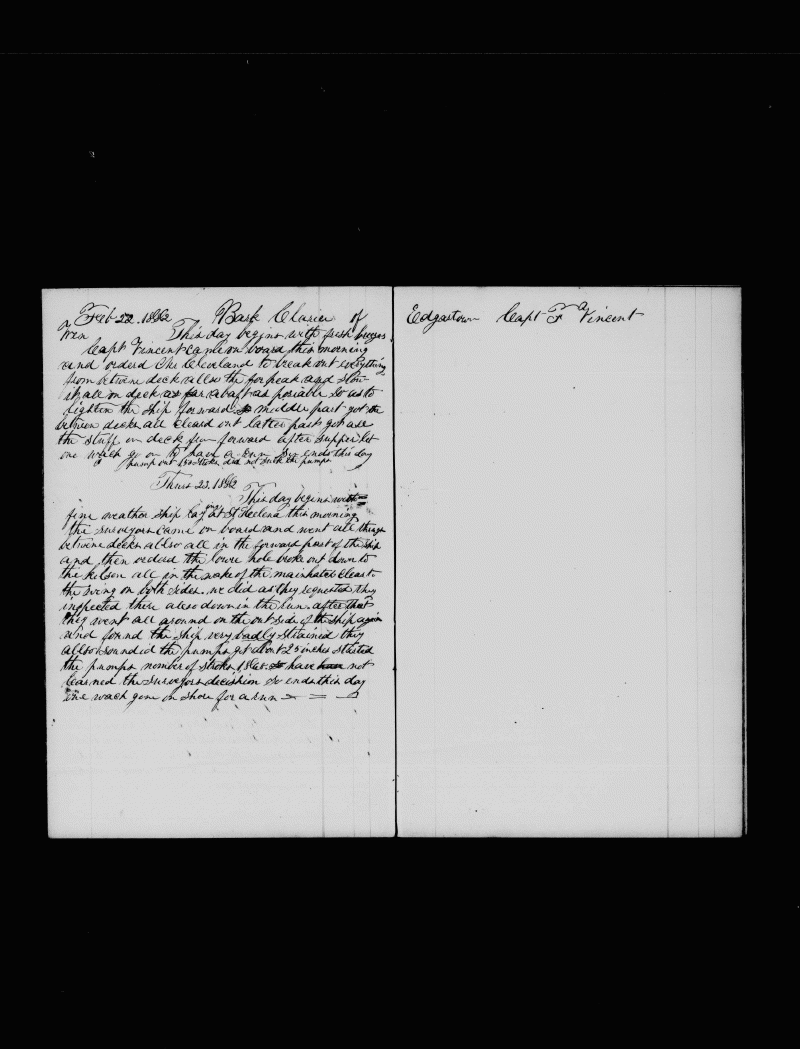 Feb 22. 1882 Bark Clarice of
Wen This day begins with fresh breezes.
Capt Vincent came on board this morning
and orderd Mr Cleveland to break out everything
from betwine deck allso the forpeak and stow
it all on deck as far abaft as posiable so as to
lighten the ship forward middle part got the
betwen decks all cleard out latter part got all
the stuff on deck from forward after supper let
one wach go on to have a run So ends this day
pump out strokes did not suck the pumps
Thurs 23. 1882
This day begins with
fine weather ship lay at St Heelena this morning
the surveyors came on board and went all throug
betwine decks allso all in the forward part of the ship
and then orderd the lowre hole broke out down to
the kelson all in the wake of the mainhatch clear to
the wing on both sides. we did as they requested they
inspected there also down in the run. after that
they went all around on the out side of the ship again
and found the ship very badly strained they
allso sounded the pumps got about 25 inches started
the pumps nomber of strokes have not
learned the Surveyors decishion so ends this day
one wach gone on shore for a run
Edgartown Capt F Vincent